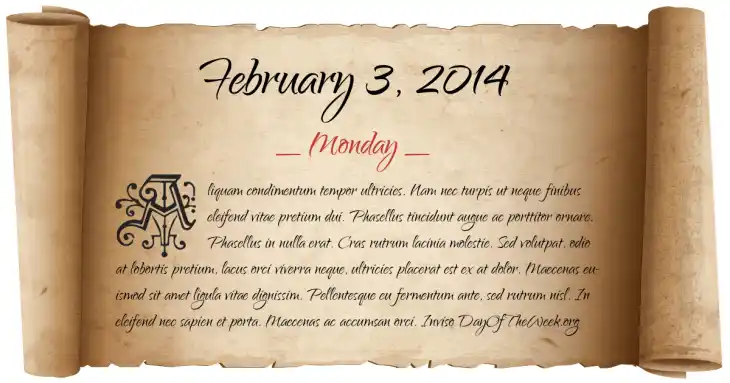 February 3, 2014
_ Monday _
Aliquam condimentum tempor ultricies. Nam nec turpis ut neque finibus
eleifend vitae pretium dui. Phasellus tincidunt augue ac porttitor ornare.
Phasellus in nulla erat. Cras rutrum lacinia molestie. Sed volutpat, odio
at lobortis pretium, lacus orci viverra neque, ultricies placerat est ex at dolor. Maecenas eu-
ismod sit amet ligula vitae dignissim. Pellentesque eu fermentum ante, sed rutrum nisl. In
eleifend nec sapien et porta. Maecenas ac accumsan orci. Invisq DayOfTheWeek.org